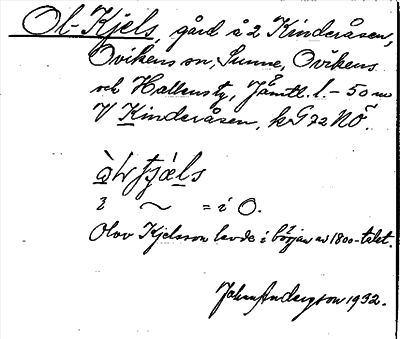 Ol-Kjels, gård å 2 Kinderåsen,
Ovikens sn, Sunne, Ovikens
och Hallens tg, Jämtl. l. - 50 m
V Kinderåsen, kG 72 NÖ.
= i O.
Olov Kjelsson levde i början av 1800-talet.
Johan Anderson 1932.